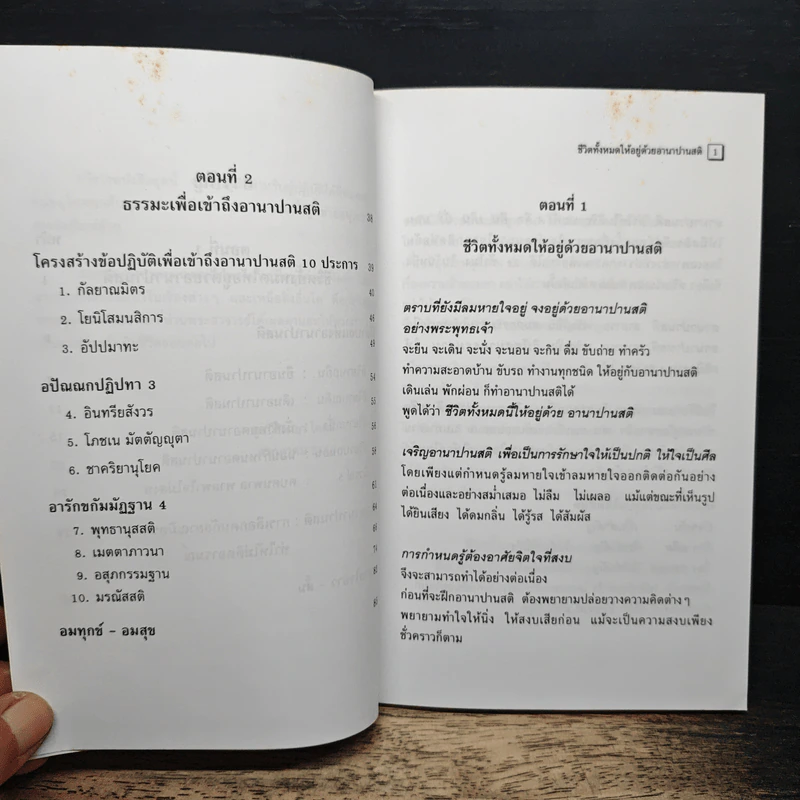 ตอนที่ 2
ธรรมะเพื่อเข้าถึงอานาปานสติ 38
โครงสร้างข้อปฏิบัติเพื่อเข้าถึงอานาปานสติ 10 ประการ 39
1. กัลยาณมิตร 40
2. โยนิโสมนสิการ 46
3. อัปปมาทะ 49
อปัณณกปฏิปทา 3 54
4. อินทรียสังวร 55
5. โภชเน มัตตัญญุตา 56
6. ชาคริยานุโยค 58
อารักขกัมมัฏฐาน 4
7. พุทธานุสสติ
8. เมตตาภาวนา
9. อสุภกรรมฐาน
10. มรณัสสติ
อมทุกข์ - อมสุข
ชีวิตทั้งหมดให้อยู่ด้วยอานาปานสติ 1
ตอนที่ 1
ชีวิตทั้งหมดให้อยู่ด้วยอานาปานสติ
ตราบที่ยังมีลมหายใจอยู่ จงอยู่ด้วยอานาปานสติ
อย่างพระพุทธเจ้า
จะยืน จะเดิน จะนั่ง จะนอน จะกิน ดื่ม ขับถ่าย ทำครัว
ทำความสะอาดบ้าน ขับรถ ทำงานทุกชนิด ให้อยู่กับอานาปานสติ
เดินเล่น พักผ่อน ก็ทำอานาปานสติได้
พูดได้ว่า ชีวิตทั้งหมดนี้ให้อยู่ด้วย อานาปานสติ
เจริญอานาปานสติ เพื่อเป็นการรักษาใจให้เป็นปกติ ให้ใจเป็นศีล
โดยเพียงแต่กำหนดรู้ลมหายใจเข้าลมหายใจออกติดต่อกันอย่าง
ต่อเนื่องและอย่างสม่ำเสมอ ไม่ลืม ไม่เผลอ แม้แต่ขณะที่เห็นรูป
ได้ยินเสียง ได้ดมกลิ่น ได้รู้รส ได้สัมผัส
การกำหนดรู้ต้องอาศัยจิตใจที่สงบ
จึงจะสามารถทำได้อย่างต่อเนื่อง
ก่อนที่จะฝึกอานาปานสติ ต้องพยายามปล่อยวางความคิดต่างๆ
พยายามทำใจให้นิ่ง ให้สงบเสียก่อน แม้จะเป็นความสงบเพียง
ชั่วคราวก็ตาม